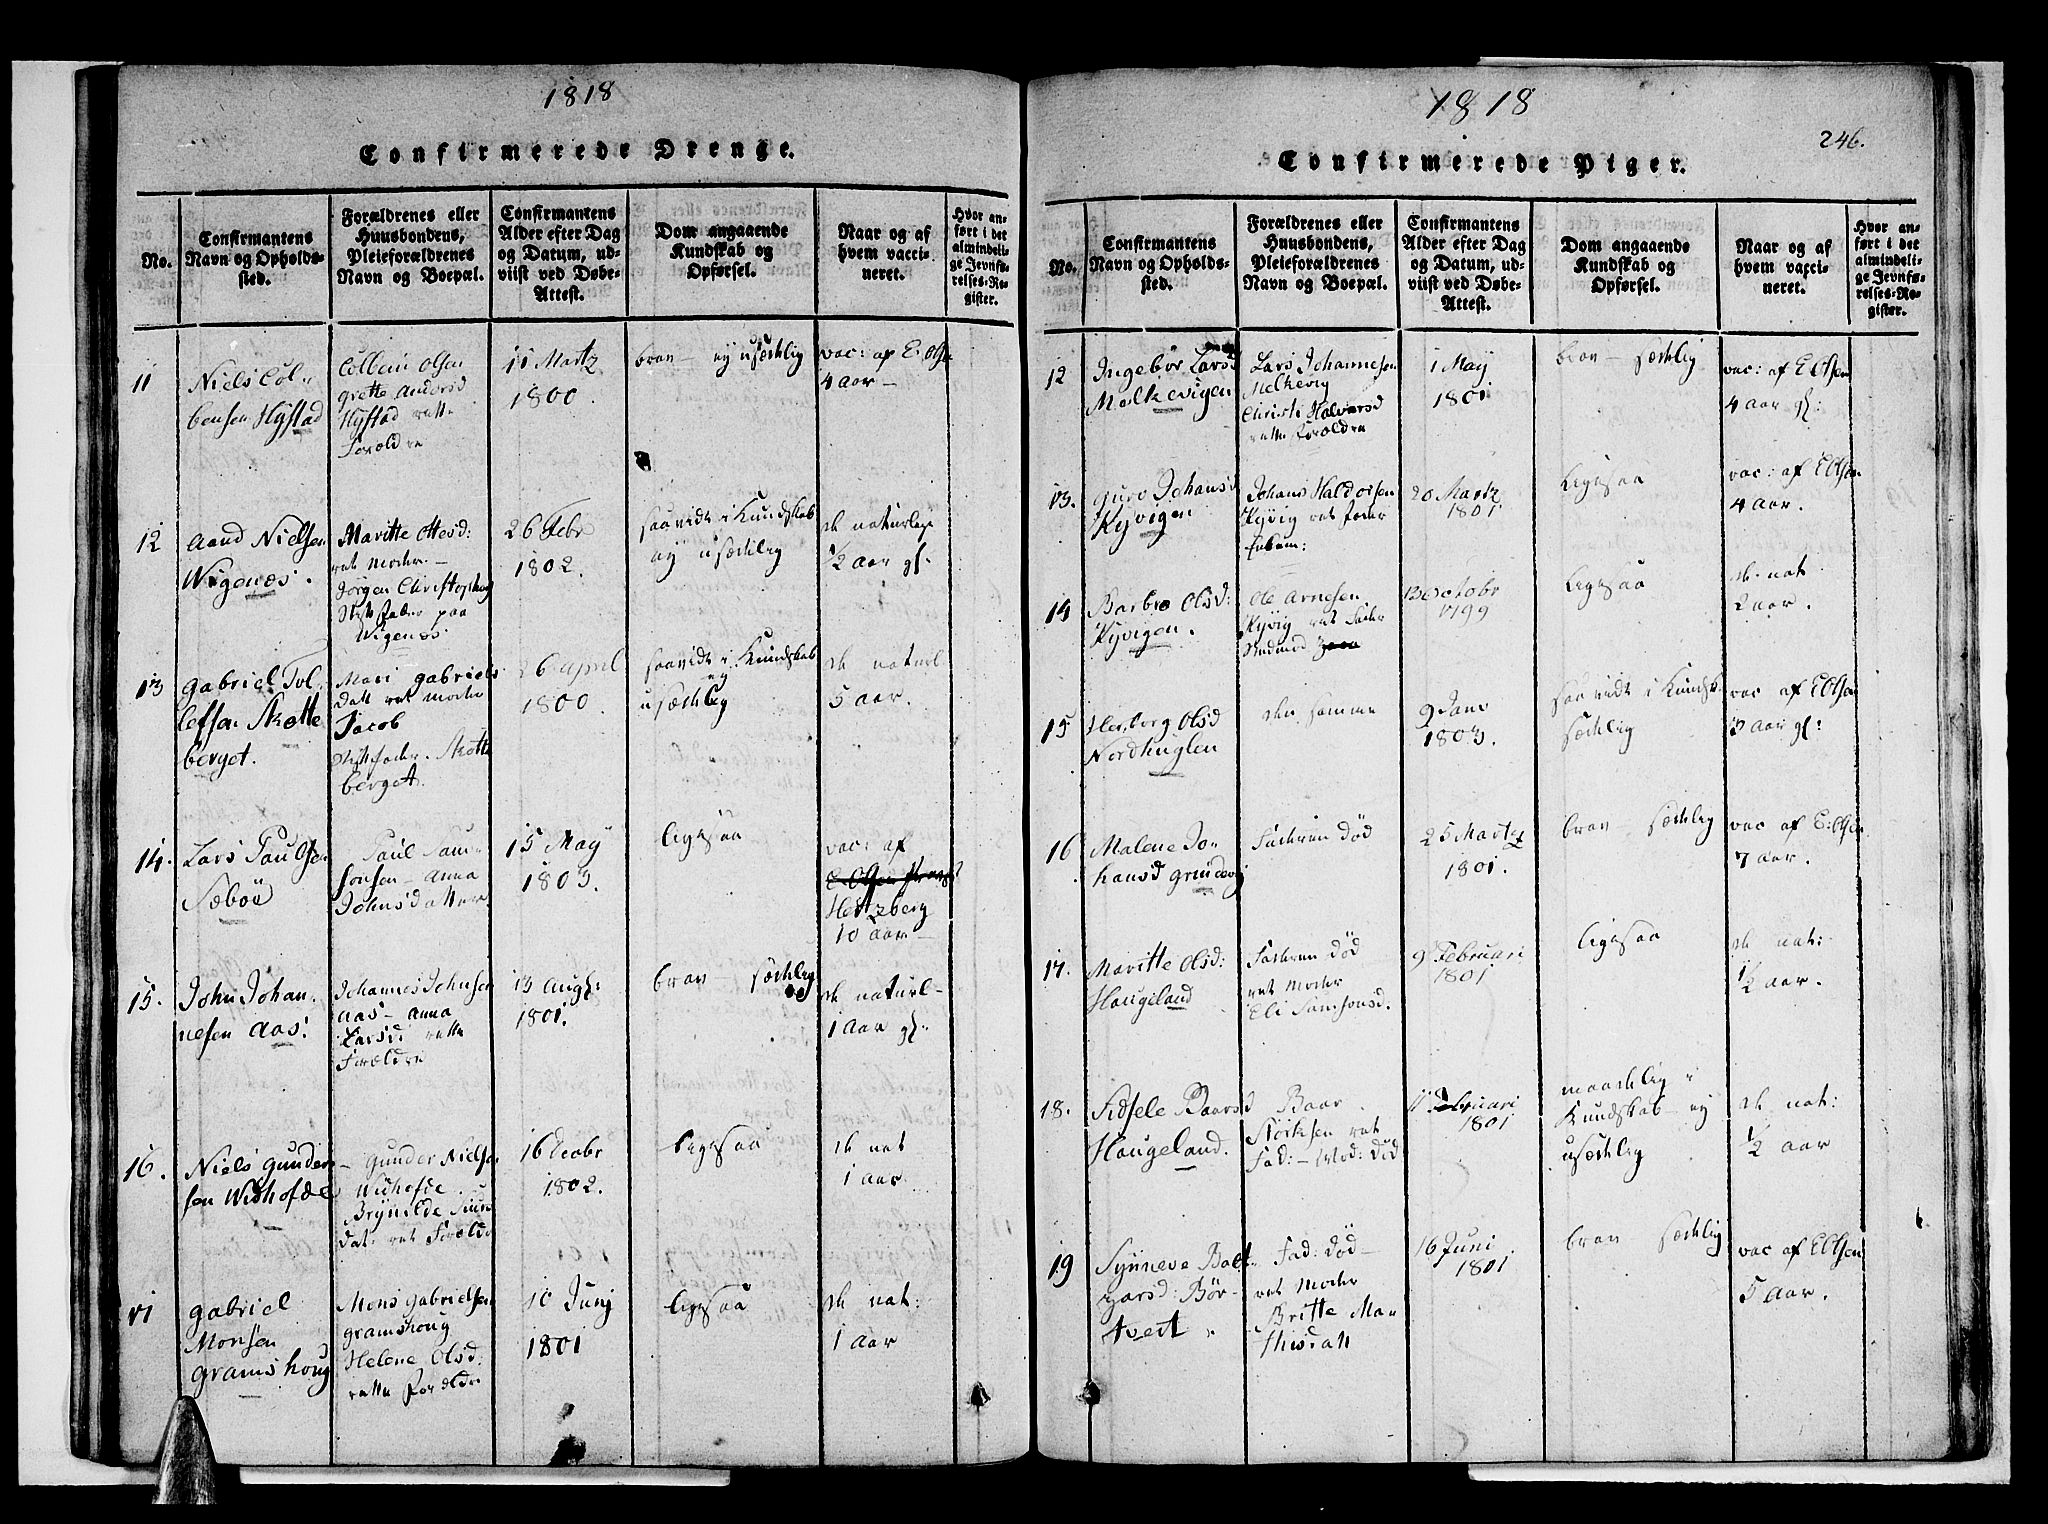 1818
Confirmerede Drenge.
No.
Confirmantens
Navn og Opholds-
sted.
Forældrenes eller
Huusbondens,
Pleieforældrenes
Navn og Boepæl.
Confirmantens
Alder efter Dag
og Datum, ud-
viist ved Døbe-
Attest.
Dom angaaende
Kundskab og
Opførsel.
Naar og af
hvem vacci-
neret.
Hvor an-
ført i det
almindeli-
ge Jevnfø-
relses-Re-
gister.
11
Niels Col-
bensen Hystad
Colbein Olsen
grette Andersd
Hystad rette
Forældre
11 Martz
1800.
brav - ey usædelig
vac: af E. Olsen
4 aar -
12
Aand Nielsen
Wigenæs.
Maritte Ottesd:
ret Moder. -
Jørgen Christophers
Stiffader paa
Wigenæs.
26 Febr
1802.
saavidt i Kundskab
ey usædelig
de naturlige
1/2 aar gl.
13
Gabriel Tol-
lefsen Skotte
berget.
Mari Gabriels
datt ret Moder
Jacob
Stiffader. Skotte
berget.
26 April
1800.
saavidt i Kundskab
ey
usædelig
de naturl
5 aar.
14.
Lars Paulsen
Sæbøe
Paul Sam-
sonsen - Anna
Johnsdatter.
15 May
1803.
ligesaa
vac: af
Hertzberg
10 aar -
15.
John Johan-
nesen Aas.
Johannes Johnsen
Aas - Anna
Larsd: rette
Forældre
13 Aug:
1801.
brav - sædelig
de naturl-
1 aar gl:
16.
Niels Gunder-
sen Widhofde
- Gunder Nielsen
Widhofde
Brynilde
dat: ret Forældre
16
1802.
ligesaa
de nat
1 aar.
17
Gabriel
Monsen
Gramshoug
Mons Gabrielsen
Gramshoug
Helene Olsd:
rette Forældre
10 Junj
1801
ligesaa
de nat:
1 aar
1818
246.
Confirmerede Piger.
No.
Confirmantens
Navn og Opholds-
sted.
Forældrenes eller
Huusbondens,
Pleieforældrenes
Navn og Boepæl.
Confirmantens
Alder efter Dag
og Datum, ud-
viist ved Døbe-
Attest.
Dom angaaende
Kundskab og
Opførsel.
Naar og af
hvem vacci-
neret.
Hvor an-
ført i det
almindeli-
ge Jevnfø-
relses-Re-
gister.
12
Ingebor Larsd
Melkevigen
Lars Johannesen
Melkevig
Christi Halvarsd
rette Forældre
1 May
1801
brav - sædelig
vac: af E Olsen
4 aar gl:
13.
Guro Johansd
Kyvigen
Johans Haldorsen
Kyvig ret Fader
20 Martz
1801
Ligesaa
vac: af E Olsen
4 aar.
14
Barbro Olsd:
Kyvigen.
Ole Arnesen
Kyvig ret Fader
13 Octobr
1799
Ligesaa
de nat
2 aar.
15
Herborg Olsd
Nordhuglen
den samme
9 Janv
1803.
saavidt i Kundsk.
sædelig
vac af E Olsen
3 aar gl:
16
Malene Jo-
hansd Grindevig
Fadren død
25 Martz
1801.
brav sædelig
vac af E: Olsen
7 aar.
17.
Maritte Olsd:
Haugeland
Fadren død
ret Moder
Eli Samsonsd.
9 Februari
1801
ligesaa
de nat:
1 1/2 aar.
18.
Sidsele Baarsd
Haugeland.
Baar
Størksen ret
Fad: - Mod: død
11 Februari
1801
maadelig i
Kundskab - ey
usædelig
de nat:
1/2 aar
19
Synneve Balt-
zarsd: Bør-
tvest
Fad: død -
ret Moder
Britte Ma-
thisdatt
16 Juni
1801
brav sædelig
vac af E Olsen
5 aar.